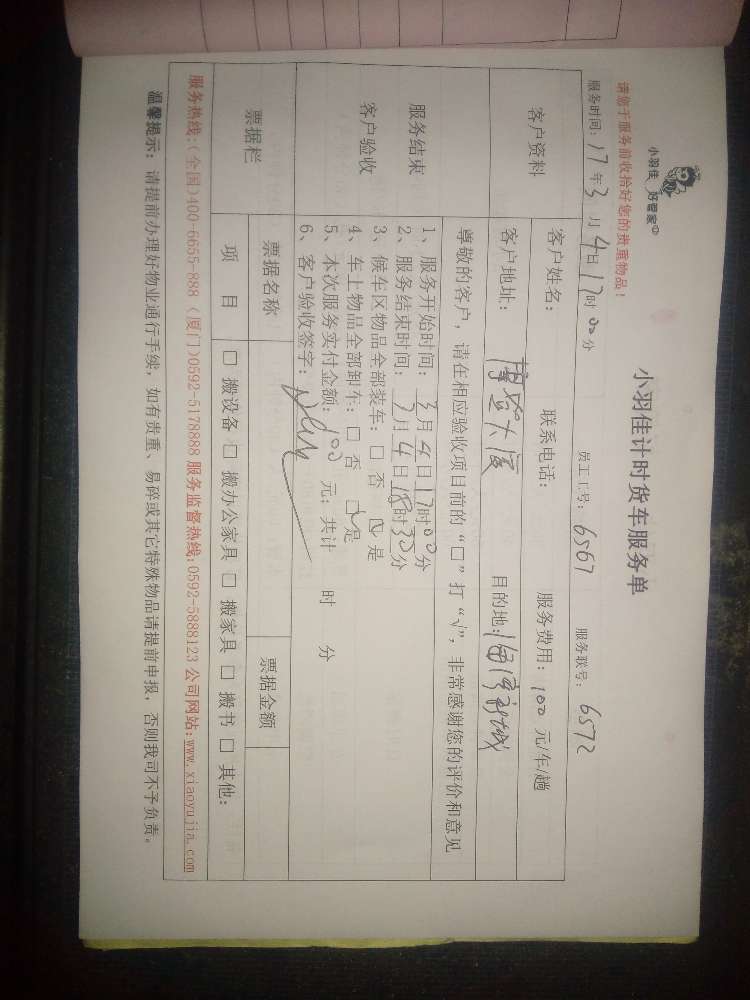 小羽佳 好管家
小羽佳计时货车服务单
请您于服务前收拾好您的贵重物品！
服务时间：17年3月4日17时00分 员工工号：6567 服务联号：6572
客户资料
客户姓名： 联系电话： 服务费用：100 元/车/趟
客户地址： 大厦 目的地：
服务结束
客户验收
尊敬的客户，请在相应验收项目前的“□”打“√”，非常感谢您的评价和意见
1、服务开始时间：3月4日17时00分
2、服务结束时间：3月4日18时30分
3、候车区物品全部装车：□ 否 ☑ 是
4、车上物品全部卸车：□ 否 ☑ 是
5、本次服务实付金额：100 元；共计 时 分
6、客户验收签字：
票据栏
票据名称 票据金额
项 目 □ 搬设备 □ 搬办公家具 □ 搬家具 □ 搬书 □ 其他：
服务热线：(全国)400-6655-888 (厦门)0592-5178888 服务监督热线：0592-5888123 公司网站：www.xiaoyujia.com
温馨提示：请提前办理好物业通行手续，如有贵重、易碎或其它特殊物品请提前申报，否则我司不予负责。